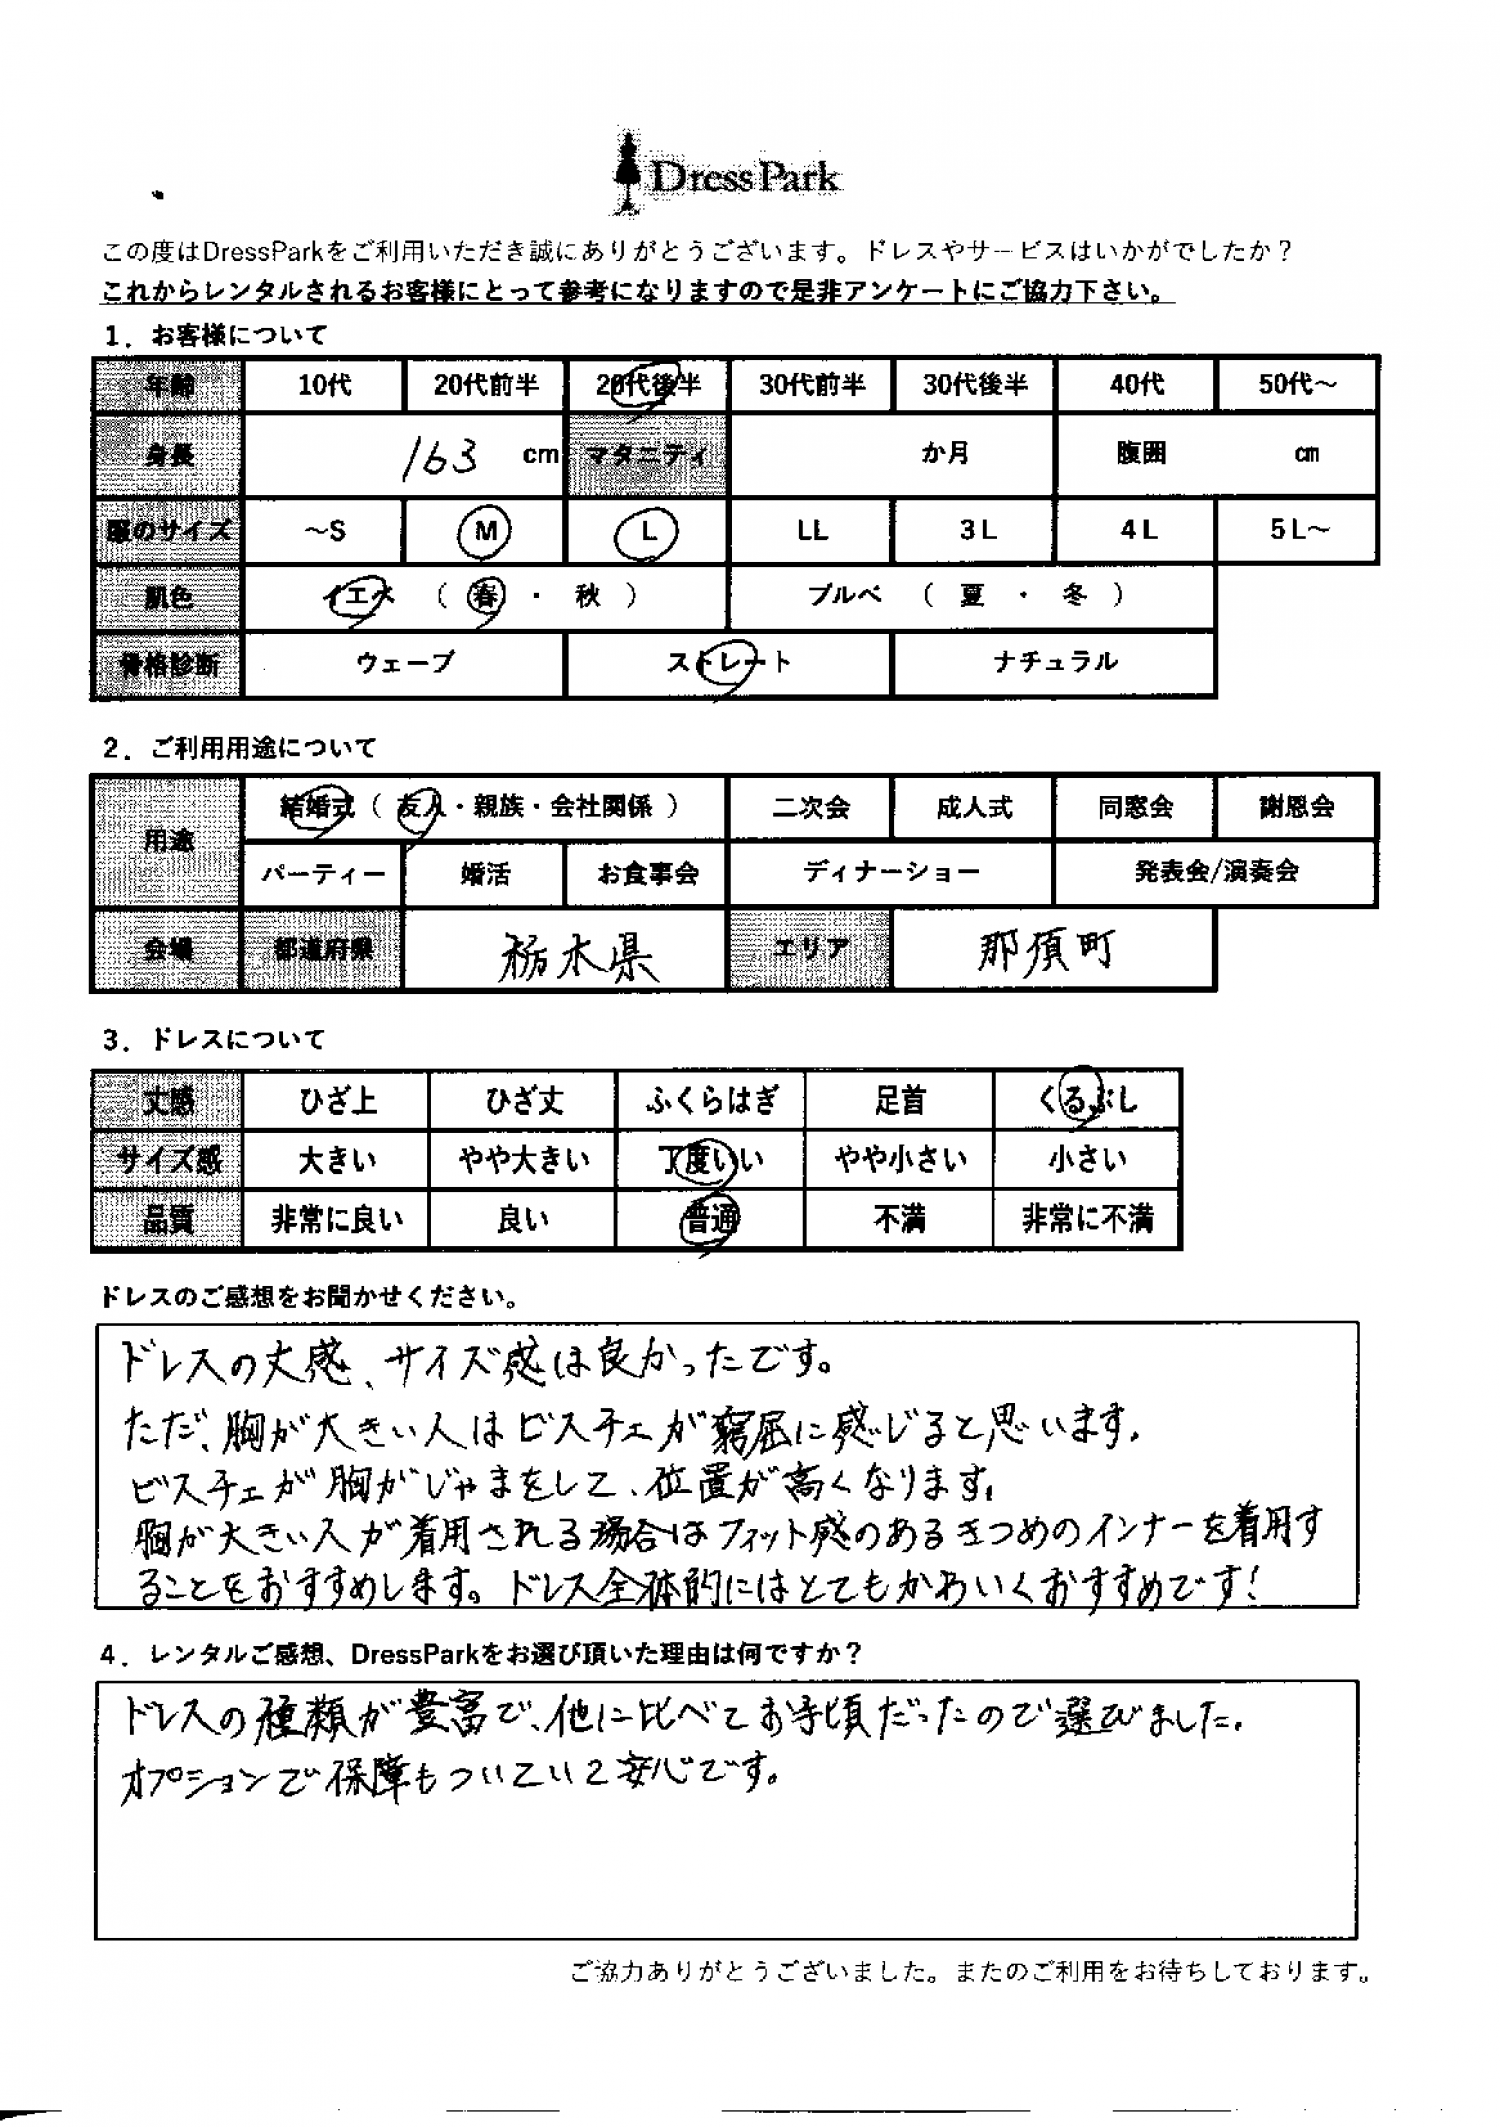 DressPark
この度はDressParkをご利用いただき誠にありがとうございます。ドレスやサービスはいかがでしたか？
これからレンタルされるお客様にとって参考になりますので是非アンケートにご協力下さい。
1．お客様について
年齢 10代 20代前半 20代後半 30代前半 30代後半 40代 50代～
身長 163 cm マタニティ か月 腹囲 cm
服のサイズ ～S M L LL 3L 4L 5L～
肌色 イエベ （ 春 ・ 秋 ） ブルベ （ 夏 ・ 冬 ）
骨格診断 ウェーブ ストレート ナチュラル
2．ご利用用途について
用途 結婚式（ 友人・親族・会社関係 ） 二次会 成人式 同窓会 謝恩会
パーティー 婚活 お食事会 ディナーショー 発表会/演奏会
会場 都道府県 栃木県 エリア 那須町
3．ドレスについて
丈感 ひざ上 ひざ丈 ふくらはぎ 足首 くるぶし
サイズ感 大きい やや大きい 丁度いい やや小さい 小さい
品質 非常に良い 良い 普通 不満 非常に不満
ドレスのご感想をお聞かせください。
ドレスの丈感、サイズ感は良かったです。
ただ、胸が大きい人はビスチェが窮屈に感じると思います。
ビスチェが胸がじゃまをして、位置が高くなります。
胸が大きい人が着用される場合はフィット感のあるきつめのインナーを着用す
ることをおすすめします。ドレス全体的にはとてもかわいくおすすめです！
4．レンタルご感想、DressParkをお選び頂いた理由は何ですか？
ドレスの種類が豊富で、他に比べてお手頃だったので選びました。
オプションで保障もついていて安心です。
ご協力ありがとうございました。またのご利用をお待ちしております。